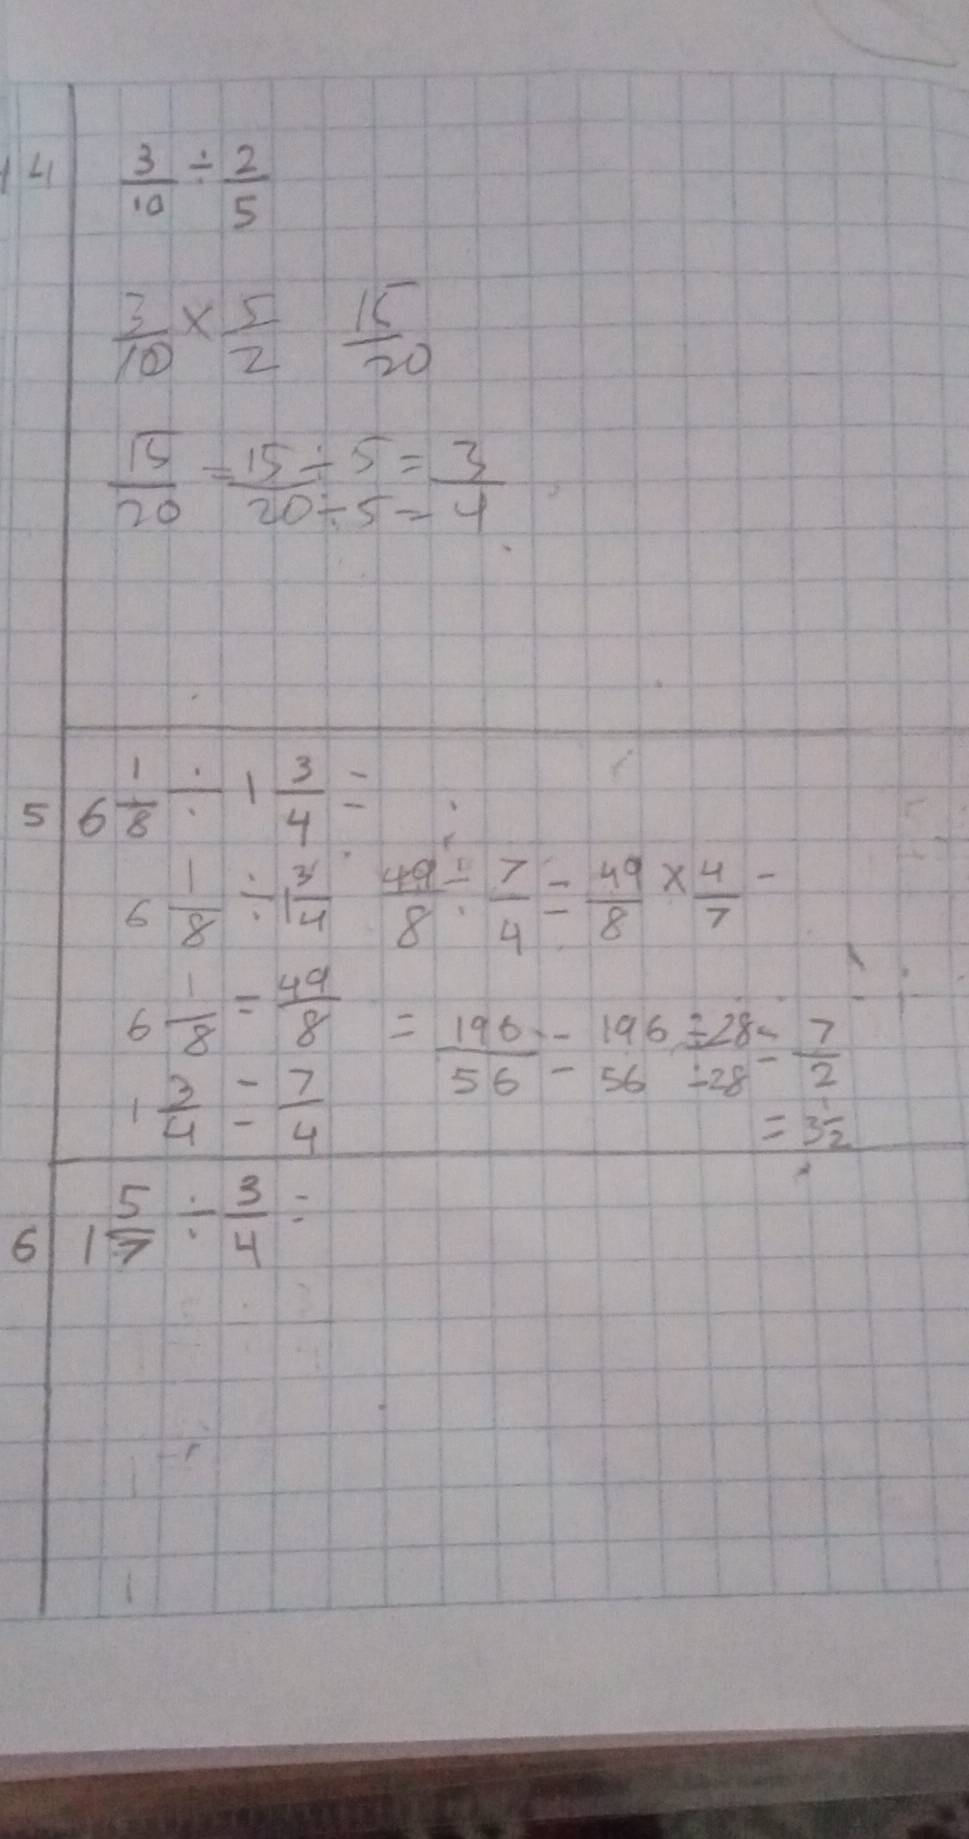 4 3/10 ÷ 2/5
3/10 × 5/2 15/20
15/20 = 15 ÷ 5 / 20 ÷ 5 = 3/4
5 6 1/8 ÷ 1 3/4 =
6 1/8 ÷ 1 3/4 49/8 ÷ 7/4 = 49/8 × 4/7 -
6 1/8 = 49/8 = 196/56 = 196 ÷ 28 / 56 ÷ 28 = 7/2
1 3/4 = 7/4 = 3 1/2
6 1 5/7 ÷ 3/4 =